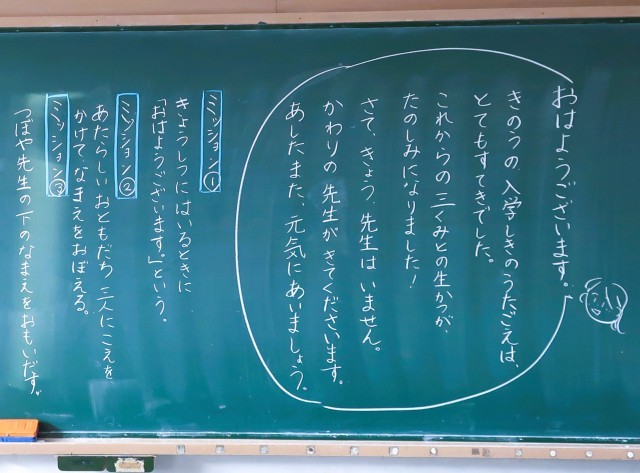 おはようございます。
きのうの入学しきのうたごえは、
とてもすてきでした。
これからの三くみとの生かつが、
たのしみになりました！
さて、きょう、先生はいません。
かわりの先生がきてくださいます。
あしたまた、元気にあいましょう。
ミッション①
きょうしつにはいるときに
「おはようございます。」という。
ミッション②
あたらしいおともだち 三人にこえを
かけて、なまえをおぼえる。
ミッション③
つぼや先生の下のなまえをおもいだす。